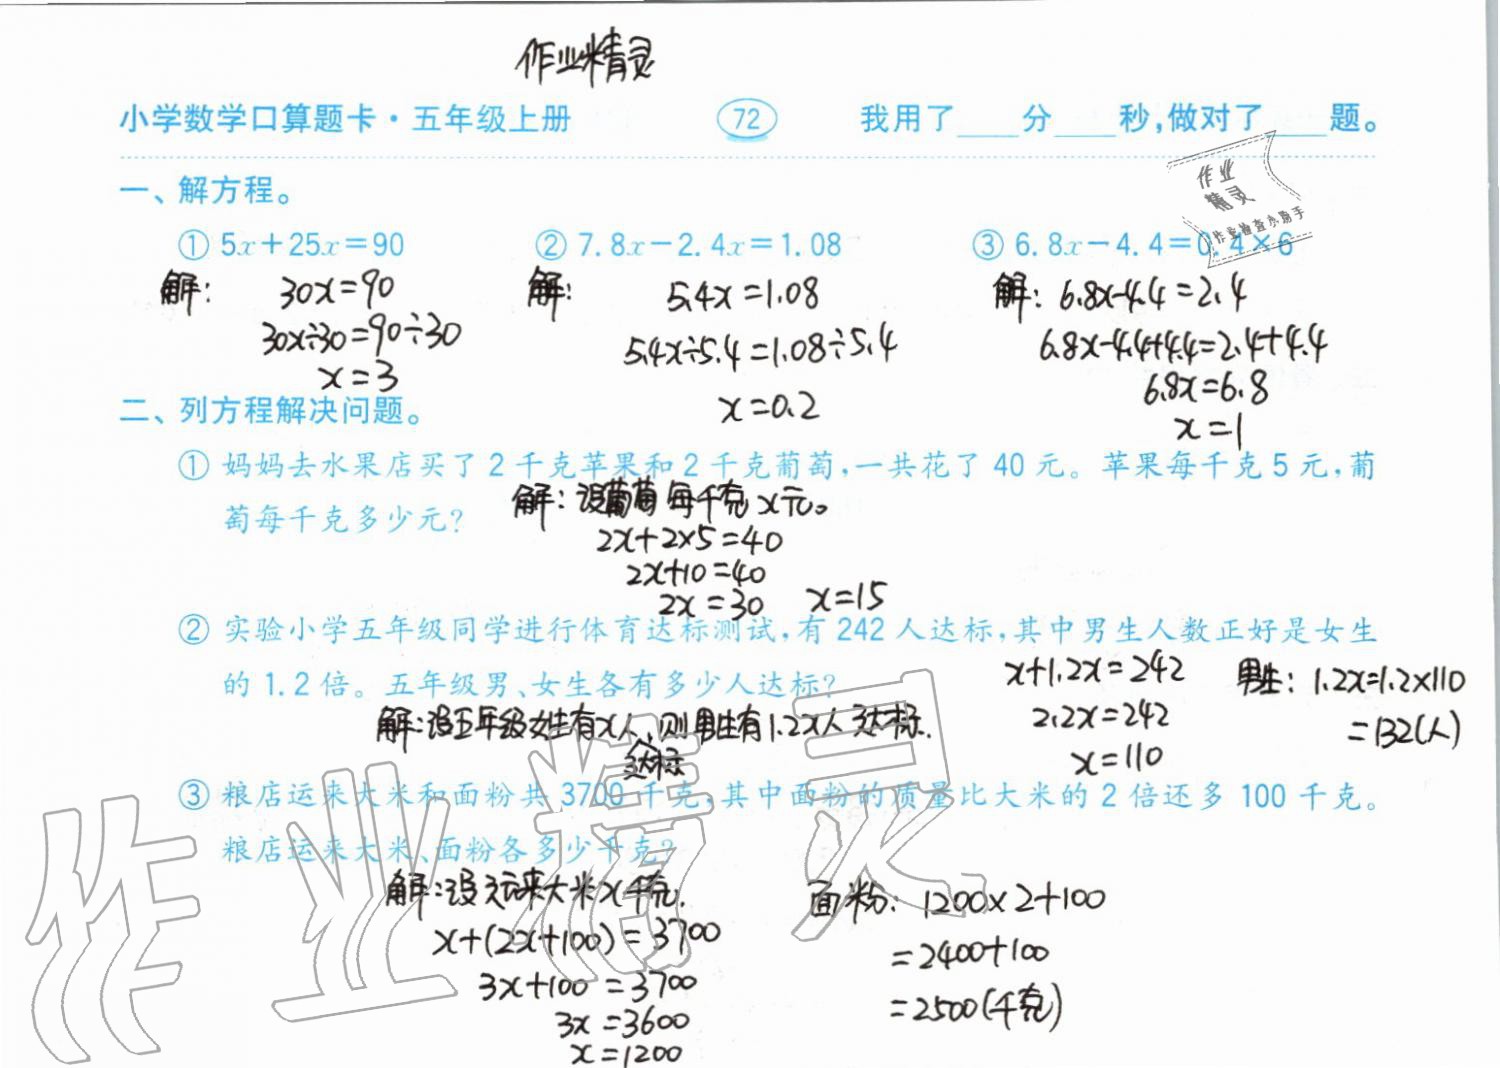 作业精灵
小学数学口算题卡·五年级上册 72 我用了____分____秒,做对了____题。
作业
精灵
作业检查小助手
一、解方程。
① 5x+25x=90 ② 7.8x-2.4x=1.08 ③ 6.8x-4.4=0.4×6
解: 30x=90 解: 5.4x=1.08 解: 6.8x-4.4=2.4
30x÷30=90÷30 5.4x÷5.4=1.08÷5.4 6.8x-4.4+4.4=2.4+4.4
x=3 x=0.2 6.8x=6.8
x=1
二、列方程解决问题。
① 妈妈去水果店买了2千克苹果和2千克葡萄,一共花了40元。苹果每千克5元,葡
萄每千克多少元?
解:设葡萄每千克x元。
2x+2×5=40
2x+10=40
2x=30 x=15
② 实验小学五年级同学进行体育达标测试,有242人达标,其中男生人数正好是女生
的1.2倍。五年级男、女生各有多少人达标?
解:设五年级女生有x人达标,则男生有1.2x人达标.
x+1.2x=242 男生: 1.2x=1.2×110
2.2x=242 =132(人)
x=110
③ 粮店运来大米和面粉共3700千克,其中面粉的质量比大米的2倍还多100千克。
粮店运来大米、面粉各多少千克?
解:设运来大米x千克.
x+(2x+100)=3700
3x+100=3700
3x=3600
x=1200
面粉: 1200×2+100
=2400+100
=2500(千克)
作业精灵